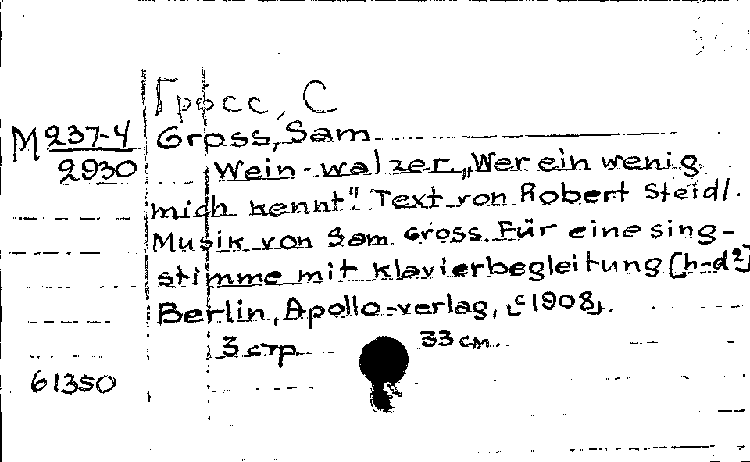 Гросс, С
М 237-4 Gross, Sam
2930 Wein-walzer „Wer ein wenig
mich kennt". Text von Robert Steidl.
Musik von Sam Gross. Für eine sing-
stimme mit klavierbegleitung [h-d²]
Berlin, Apollo-verlag, [c 1908].
3 стр. 33 см.
61350